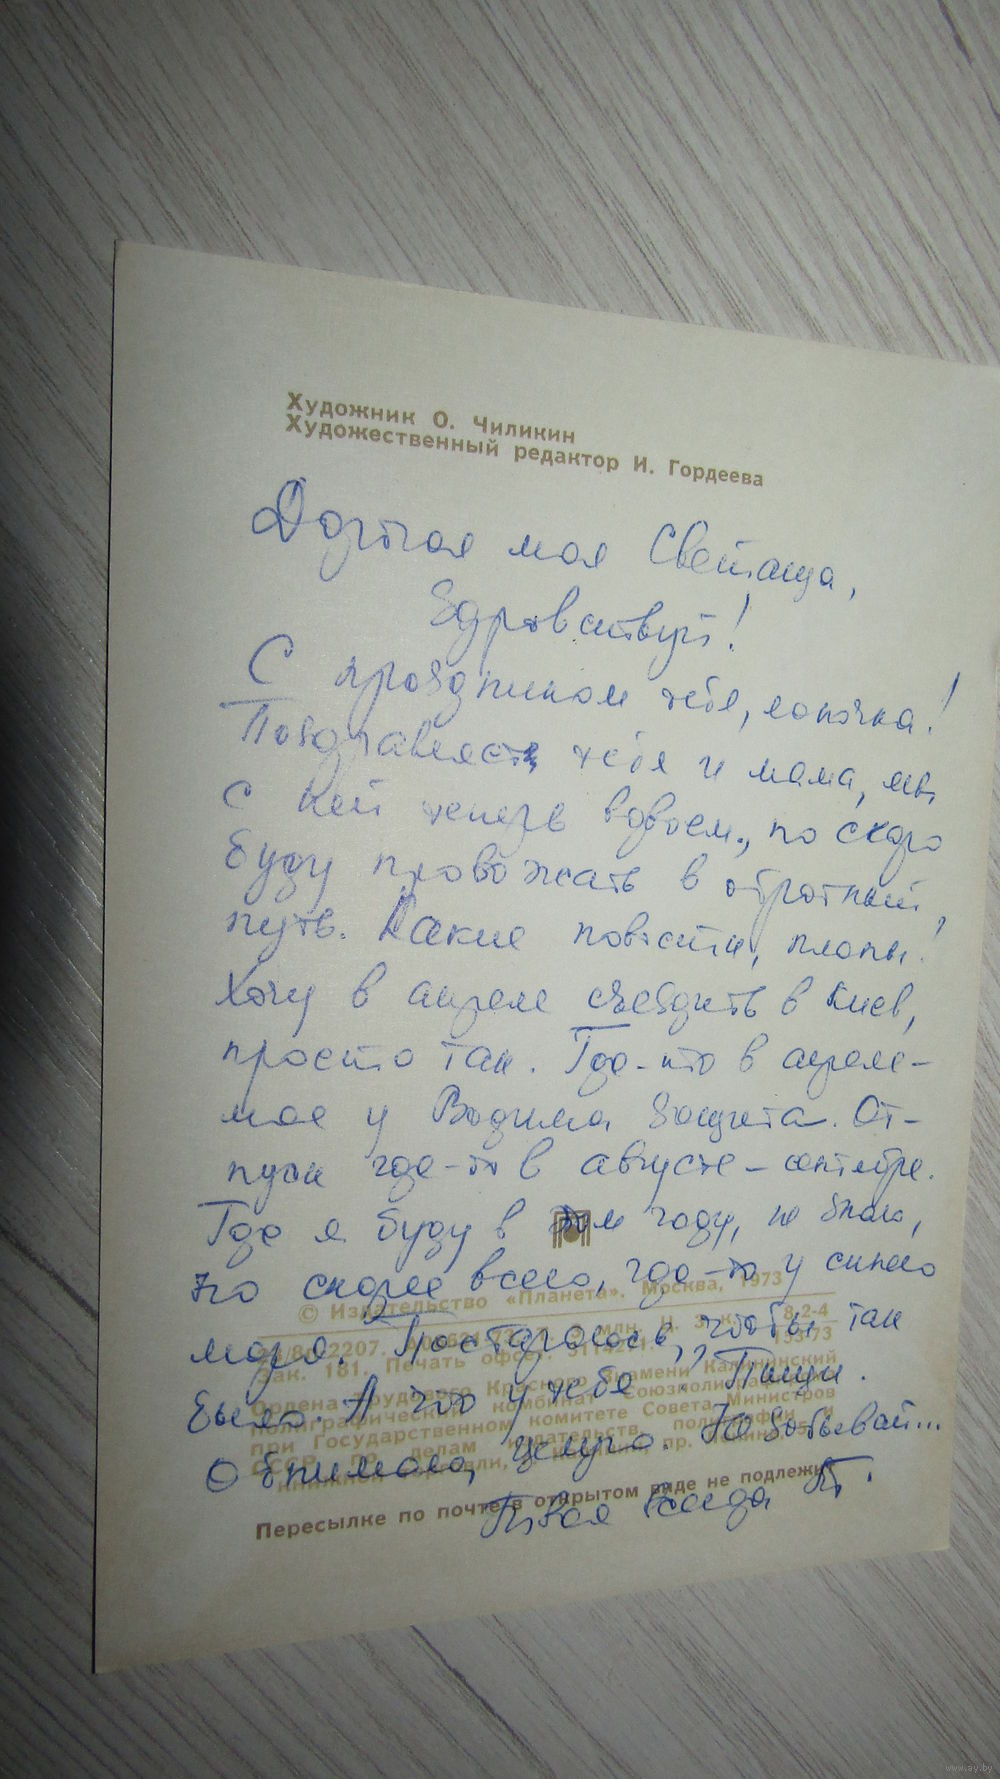 Художник О. Чиликин
Художественный редактор И. Гордеева
Дорогая моя Светаща,
Здравствуй!
С праздником тебя, лапочка!
Поздравляет тебя и мама, мы
с ней теперь вдвоем, но скоро
буду провожать в обратный
путь. Какие новости, планы!
Хочу в апреле съездить в Киев,
просто так. Где-то в апреле-
мае у Вадима защита. От-
пуск где-то в августе-сентябре.
Где я буду в этом году, не знаю,
но скорее всего, где-то у синего
© Издательство «Планета». Москва, 1973
моря. Постараюсь, чтобы так
8-2-4
Зак. 181. Печать офсет.
153-73
было. А что у тебя? Пиши.
Ордена Трудового Красного Знамени Калининский
полиграфический комбинат Союзполиграфпрома
при Государственном комитете Совета Министров
СССР по делам издательств, полиграфии и
Обнимаю, целую. Не забывай...
книжной торговли, пр. Ленина, 5.
Пересылке по почте в открытом виде не подлежит
Твоя всегда Т.
www.ay.by